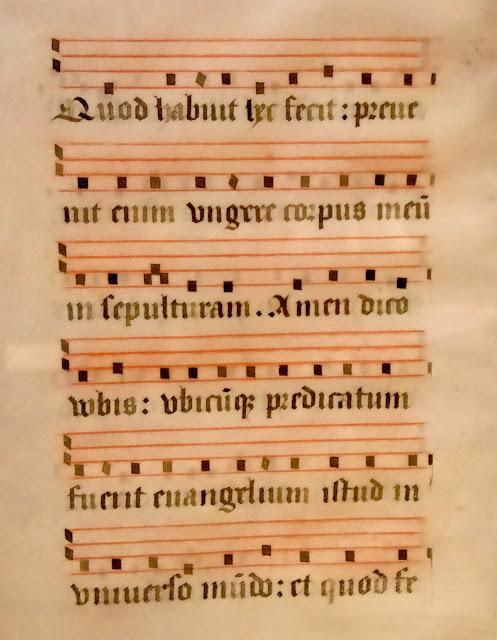 Quod habuit hec fecit: preue
nit enim vngere corpus meū
in sepulturam. Amen dico
vobis: vbicūqꝫ predicatum
fuerit euangelium istud in
vniuerso mūdo: et quod fe